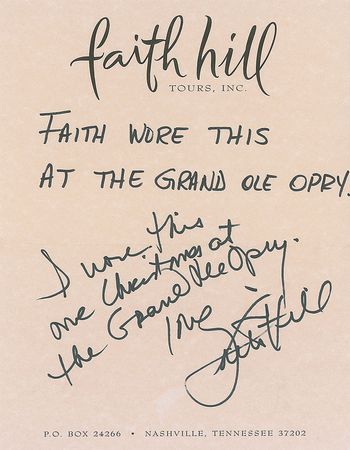 faith hill
TOURS, INC.
FAITH WORE THIS
AT THE GRAND OLE OPRY.
I wore this
one Christmas at
the Grand Ole Opry.
love,
Faith Hill
P.O. BOX 24266 • NASHVILLE, TENNESSEE 37202